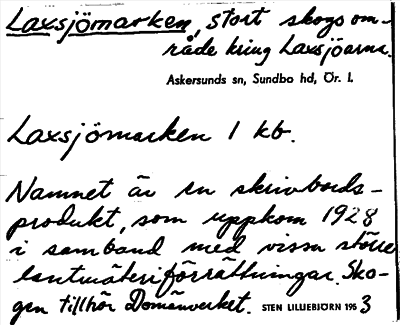 Laxsjömarken, stort skogsom-
råde kring Laxsjöarna.
Askersunds sn, Sundbo hd, Ör. l.
Laxsjömarken 1 kb.
Namnet är en skrivbords-
produkt, som uppkom 1928
i samband med vissa större
lantmäteriförrättningar. Sko-
gen tillhör Domänverket. STEN LILLIEBJÖRN 1953